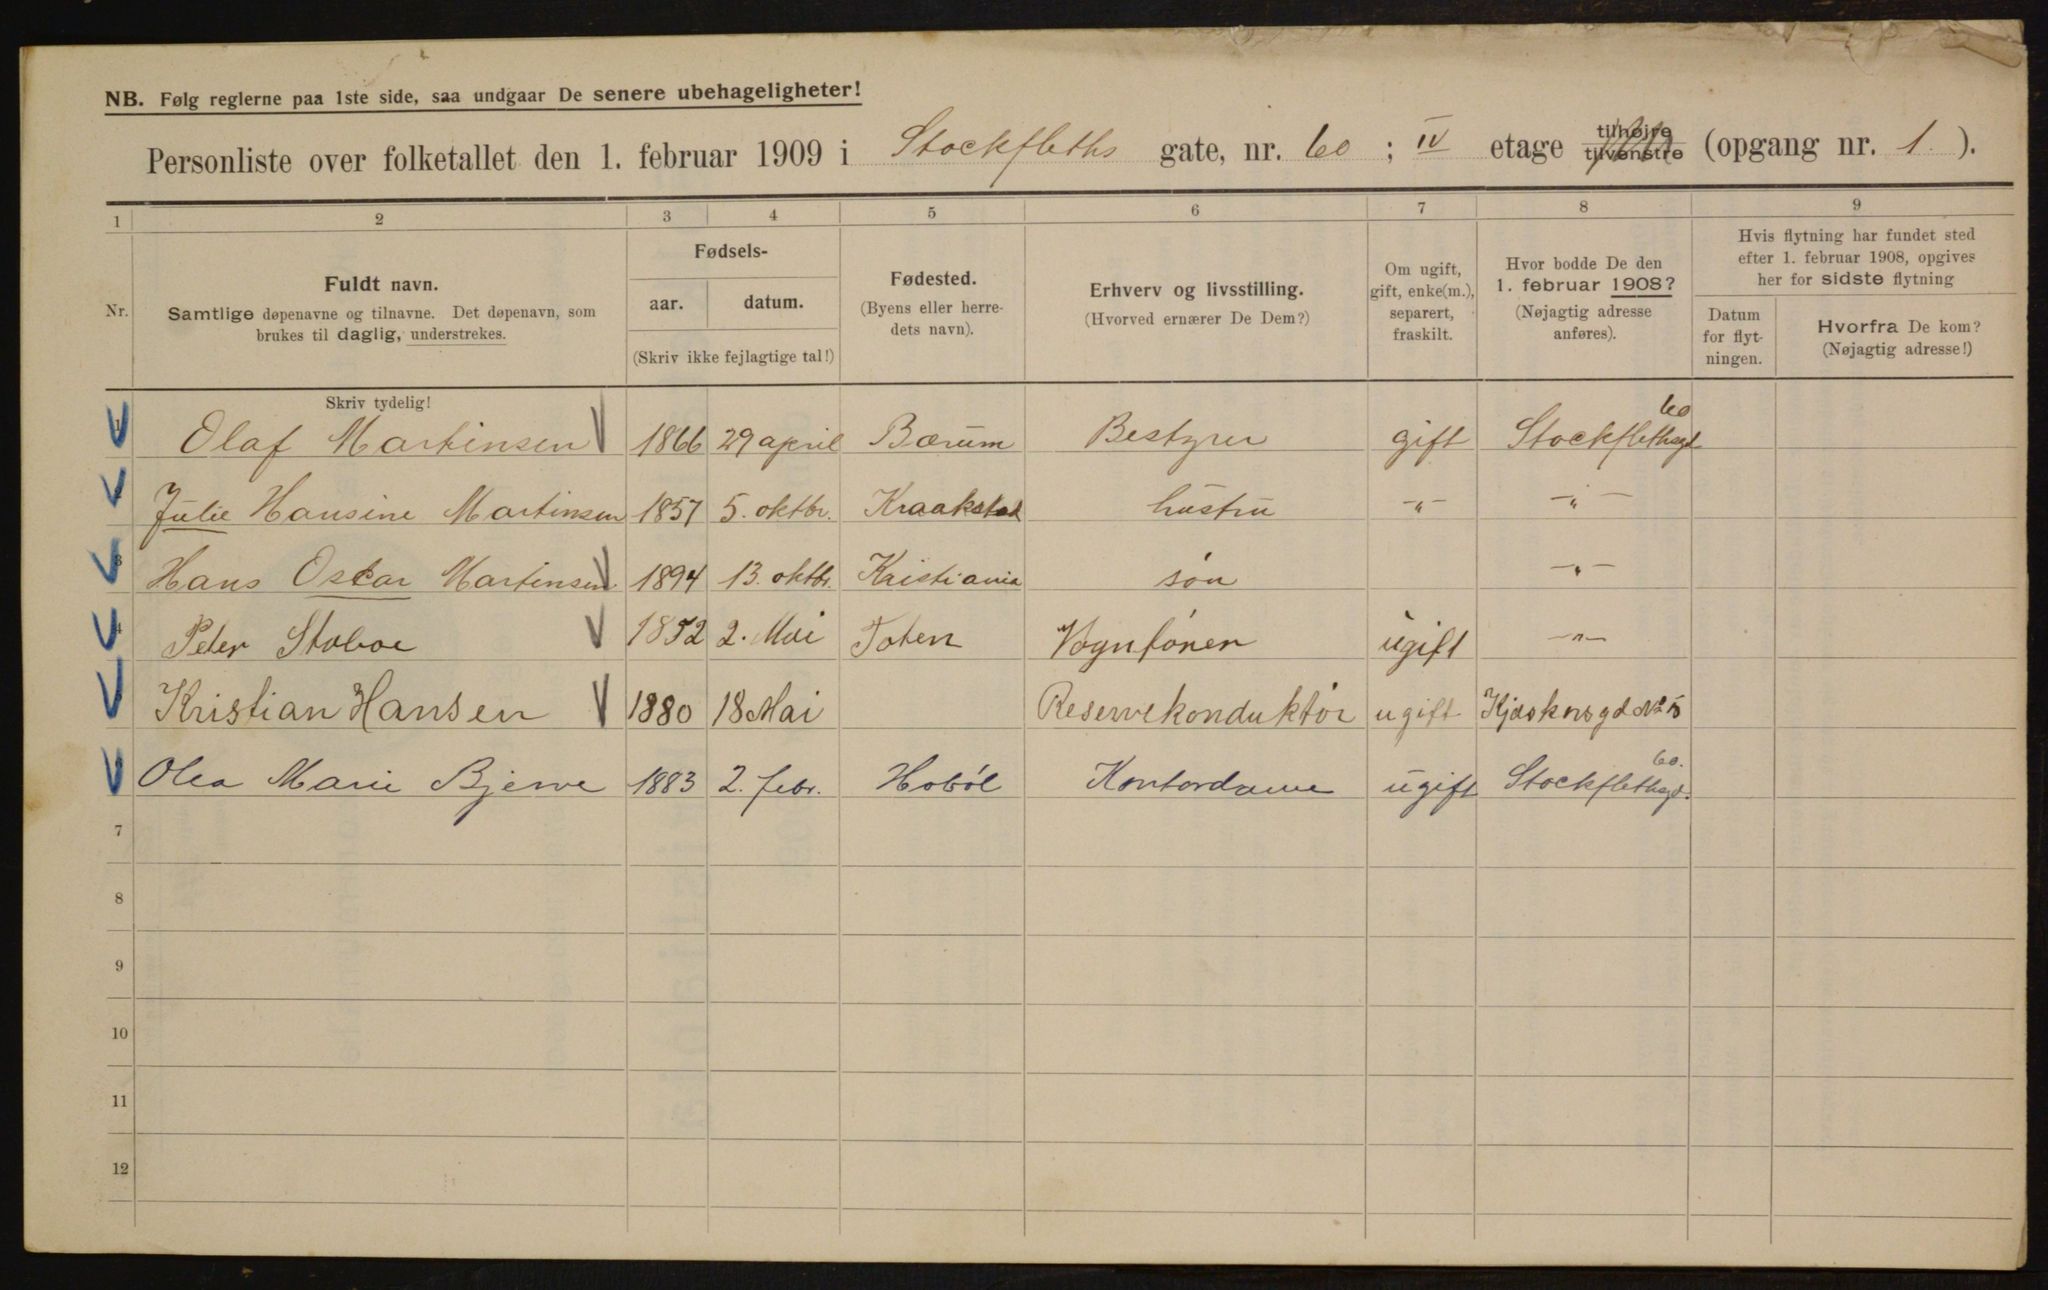 NB. Følg reglerne paa 1ste side, saa undgaar De senere ubehageligheter!
Personliste over folketallet den 1. februar 1909 i Stockfleths gate, nr. 60 ; IV etage tilhøjre tilvenstre (opgang nr. 1. ).
1 2 3 4 5 6 7 8 9
Nr.
Fuldt navn.
Samtlige døpenavne og tilnavne. Det døpenavn, som
brukes til daglig, understrekes.
Fødsels-
aar. datum.
(Skriv ikke fejlagtige tal!)
Fødested.
(Byens eller herre-
dets navn).
Erhverv og livsstilling.
(Hvorved ernærer De Dem?)
Om ugift,
gift, enke(m.),
separert,
fraskilt.
Hvor bodde De den
1. februar 1908?
(Nøjagtig adresse
anføres).
Hvis flytning har fundet sted
efter 1. februar 1908, opgives
her for sidste flytning
Datum
for flyt-
ningen.
Hvorfra De kom?
(Nøjagtig adresse!)
Skriv tydelig!
1 Olaf Martinsen 1866 29 april Bærum Bestyrer gift Stockflethsgd 60
2 Julie Hansine Martinsen 1857 5. oktbr. Kraakstad hustru -"- -"-
3 Hans Oscar Martinsen 1894 13. oktbr. Kristiania søn -"-
4 Peter Staboe 1852 2. Mai Toten Vognfører ugift -"-
5 Kristian Hansen 1880 18 Mai Reservekonduktør ugift
6 Olea Marie Bjerve 1883 2. febr. Hobøl Kontordame ugift Stockflethsgd. 60.
7
8
9
10
11
12